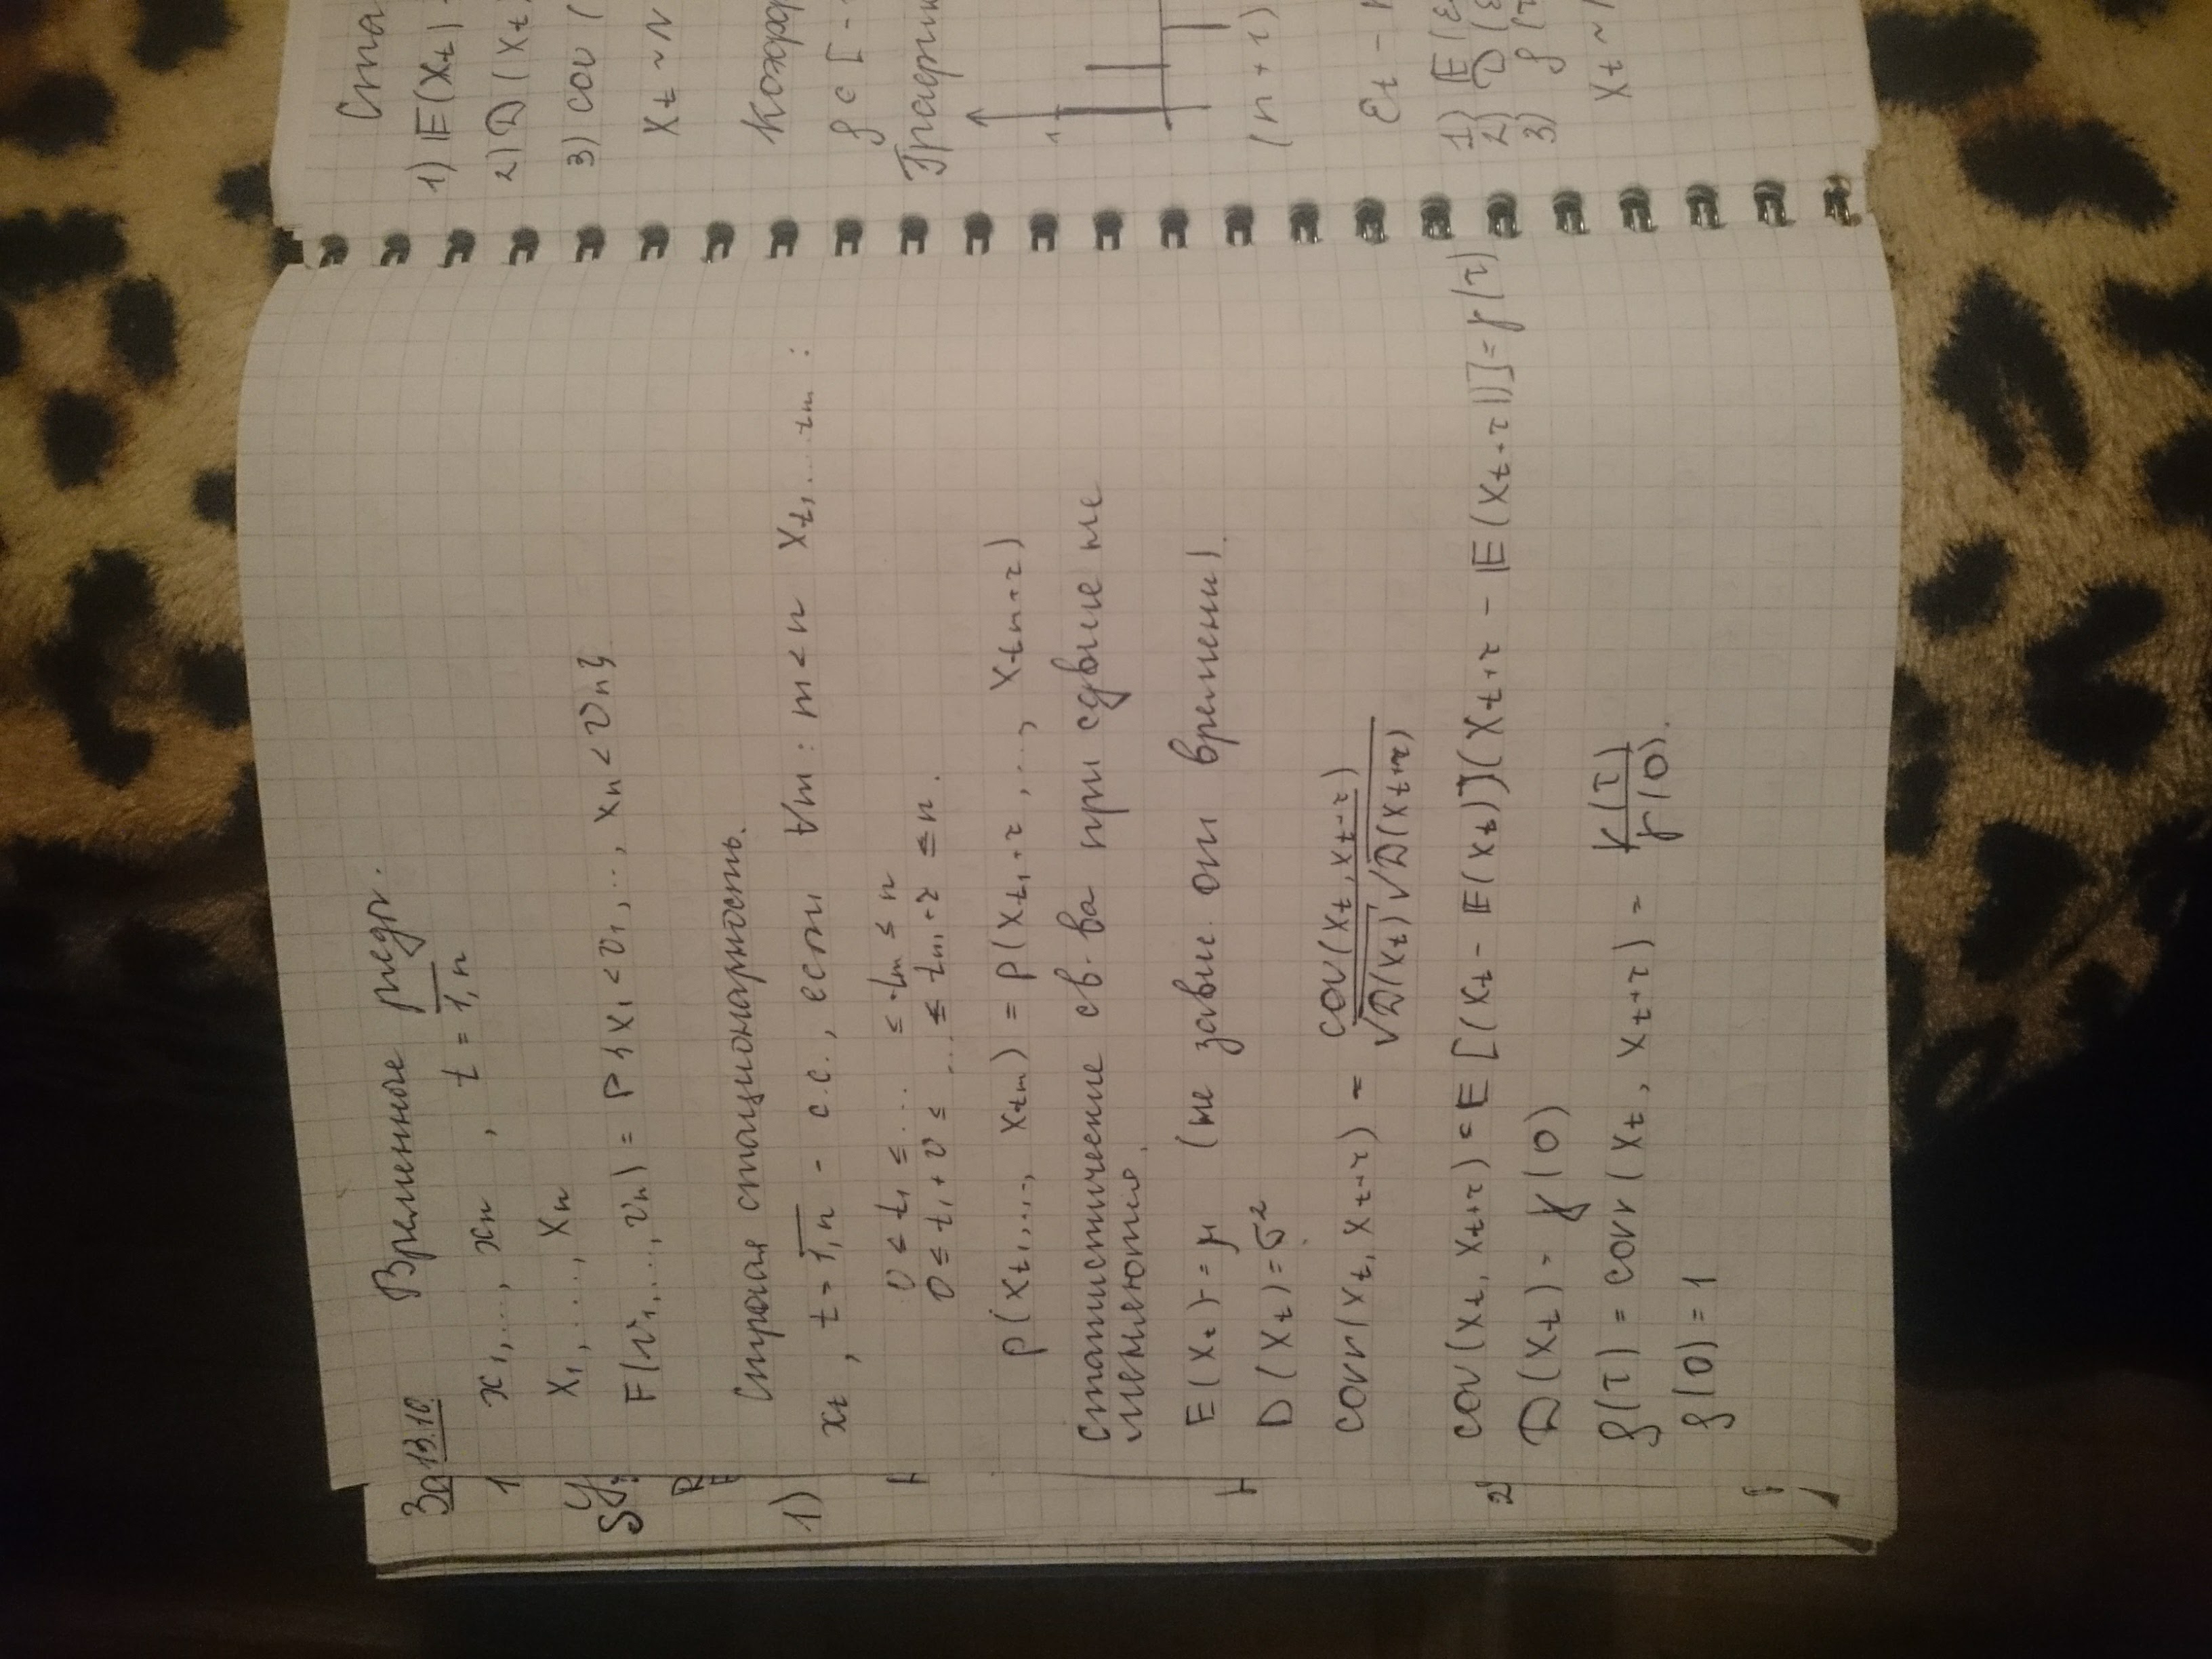 13.10.
Временные ряды.
x₁,..., xₙ , t = 1,n
X₁,...., Xₙ
F(v₁,...,vₙ) = P{X₁<v₁,..., Xₙ<vₙ}
Строгая стационарность.
xt, t = 1,n - с.с., если ∀m: m<n Xt₁,... tm :
0 ≤ t₁ ≤ ... ≤ tm ≤ n
0 ≤ t₁+τ ≤ ... ≤ tm+τ ≤ n.
p(Xt₁,..., Xtm) = p(Xt₁+τ,..., Xtm+τ)
Статистические св-ва при сдвиге не
меняются.
E(Xt) = μ (не завис от времени)
D(Xt) = σ²
corr(Xt, Xt+τ) = cov(Xt, Xt+τ) / √D(Xt) √D(Xt+τ)
cov(Xt, Xt+τ) = E[(Xt - E(Xt))(Xt+τ - E(Xt+τ))] = γ(τ)
D(Xt) = γ(0)
ρ(τ) = corr(Xt, Xt+τ) = γ(τ) / γ(0).
ρ(0) = 1
Ста
1) E(Xt)
2) D(Xt)
3) cov(
Xt ~ N
Коэфф
ρ ∈ [-
График
(n+τ)
εt -
1) E(ε
2) D(ε
3) ρ(τ
Xt ~
За
1
1)
2